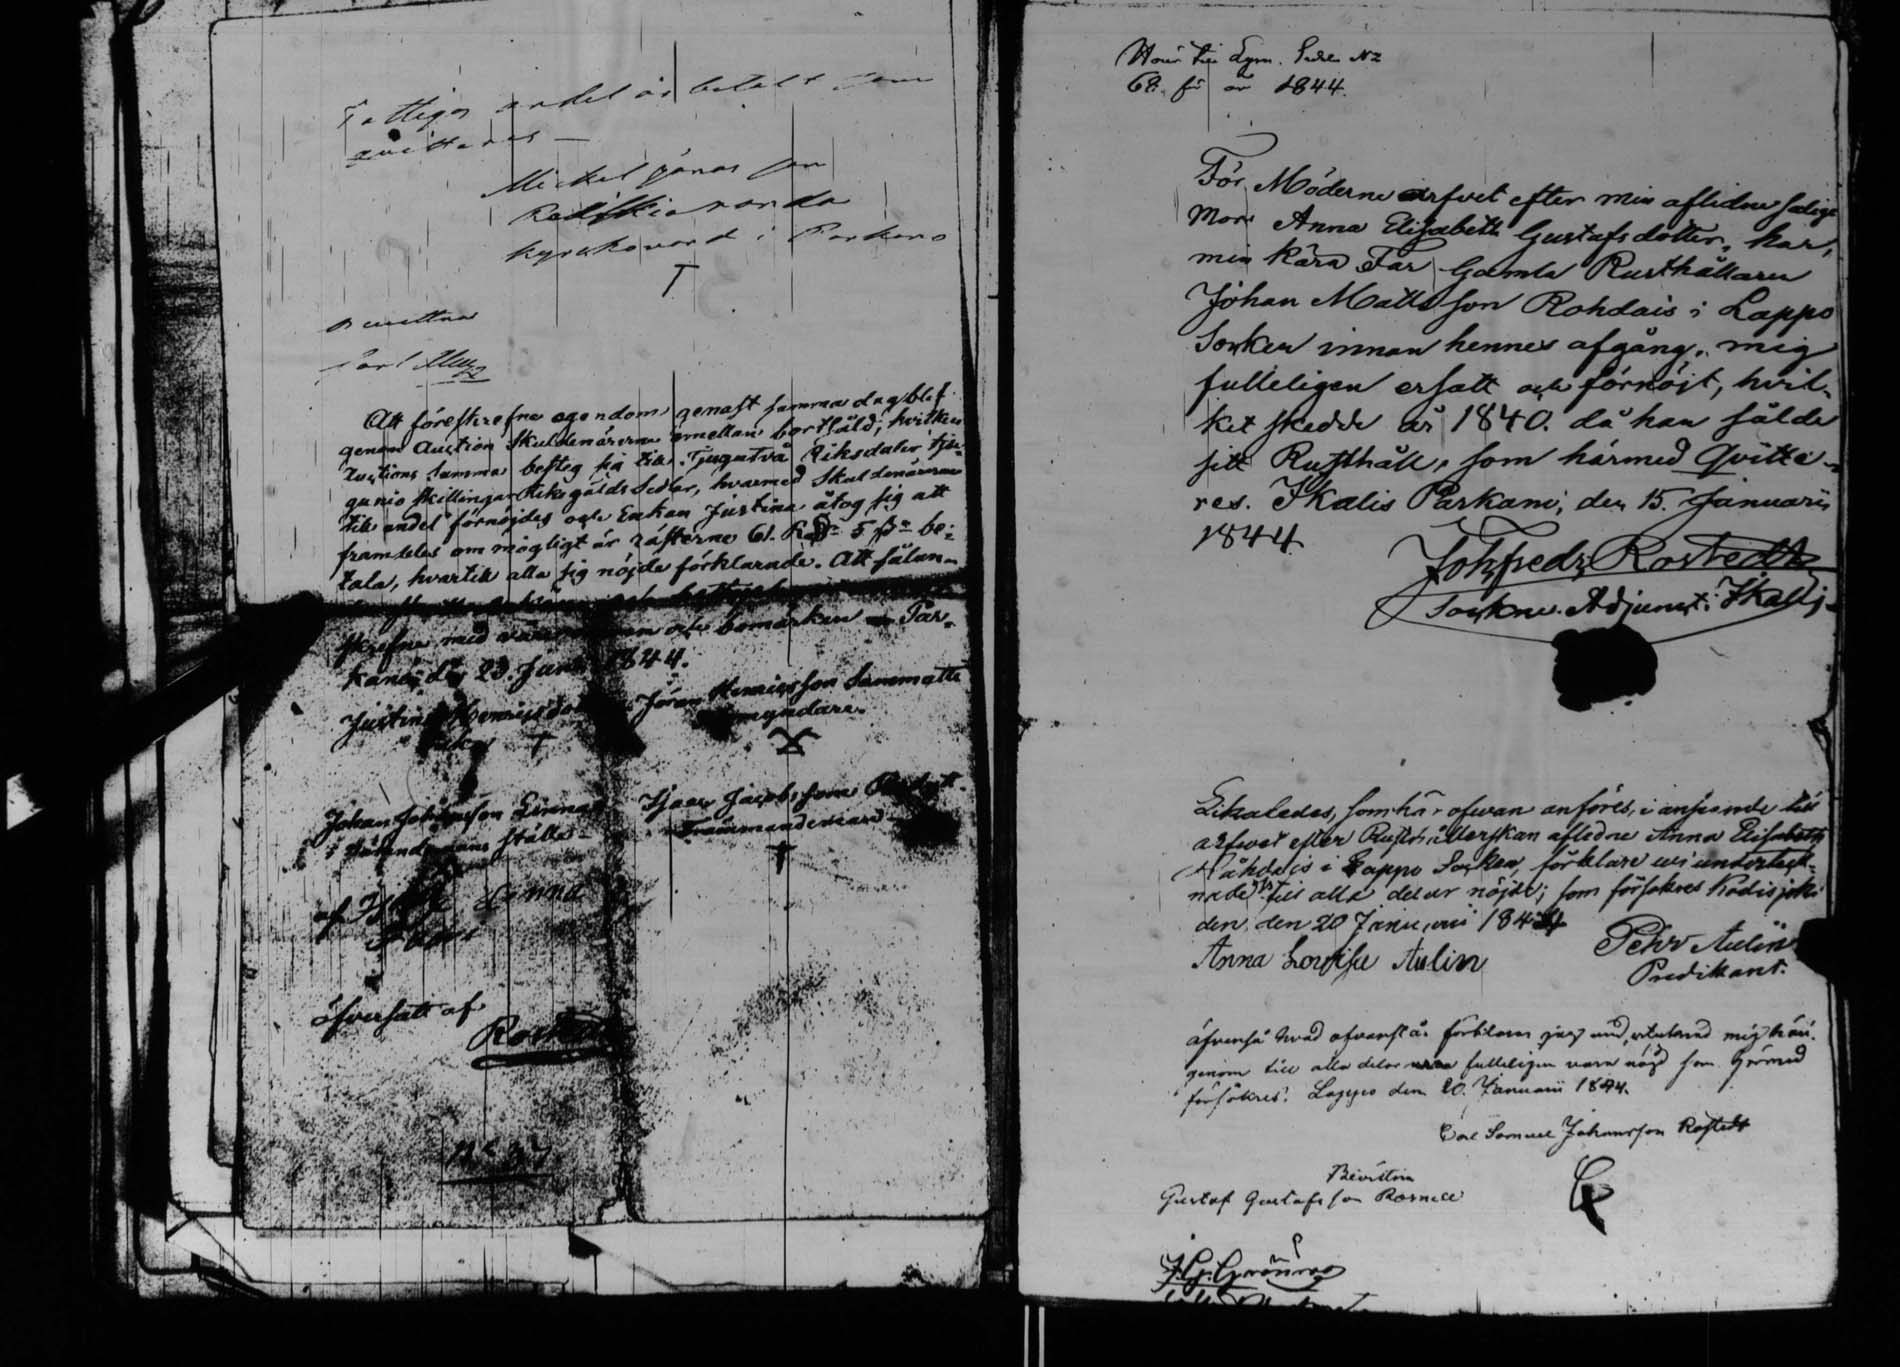 Fattigas andel är betalt som
qvitteras —
Mickel Jönas son
kyrkovard i Parkano
Bevittna
Carl
Att föreskrefne egendom genast samma dag blef
genom Auction Skuldenärerne emellan bortsåld; hvilken
Auctions Summa besteg sig till Tjugutvå Riksdaler tju-
gunio skillingar Riksgälds Sedlar, hvarmed Skuldenärerne
till andel förnöjdes och Enkan Justina åtog sig att
framdeles om möjligt är resterne 61. Rd 5 ß be-
tala, hvartill alla sig nöjde förklarade. Att sålun-
skrefne med våra namn och bomärken — Par-
kano den 23. Juni 1844.
Justina Henricsdotter
Enka
Jöran Henricsson Sammatti
myndare
Johan Johansson Linna
i stället
Isaac Jacobsson
Främmande
af
Linna
öfversatt af
Rostedt
No 37
Hörer till Lym. No
68. för år 1844.
För Möderne arfvet efter min aflidne salige
Mor Anna Elisabeth Gustafsdotter, har,
min kära Far Gamla Rusthållaren
Johan Mattsson Rohdais i Lappo
Socken innan hennes afgång, mig
fulleligen ersatt och förnöjt, hvil-
ket skedde år 1840. då han sålde
sitt Rusthåll, som härmed Qvitte-
res. Ikalis Parkano, den 15. Januarii
1844.
Joh: Fredr: Rostedt
Sockne Adjunct i Ikalis
Likaledes, som här ofwan anföres, i anseende till
arfwet efter Rusthållerskan aflidne Anna Elisabeth
Råhdais i Lappo Socken, förklare wi underteck-
nade oss till alla delar nöjde; som försäkres Kodisjoki
den, den 20 Januarii 1844
Anna Lovisa Aulin
Pehr Aulin
Predikant.
äfvenså hvad ofvanstår förklarar jag undertecknad mig häri-
genom till alla delar fulleligen vara nöjd som härmed
försäkres. Lappo den 20. Januarii 1844.
Carl Samuel Johansson Rostedt
Bevittna
Gustaf Gustafsson Rosnell
J. G. Grönroos